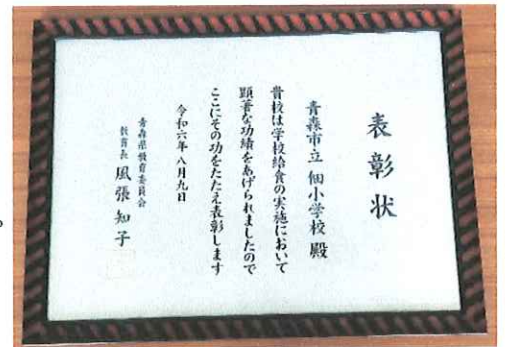 表彰状
青森市立 佃小学校 殿
貴校は学校給食の実施において
顕著な功績をあげられましたので
ここにその功をたたえ表彰します
令和六年八月九日
青森県教育委員会
教育長 風張 知子